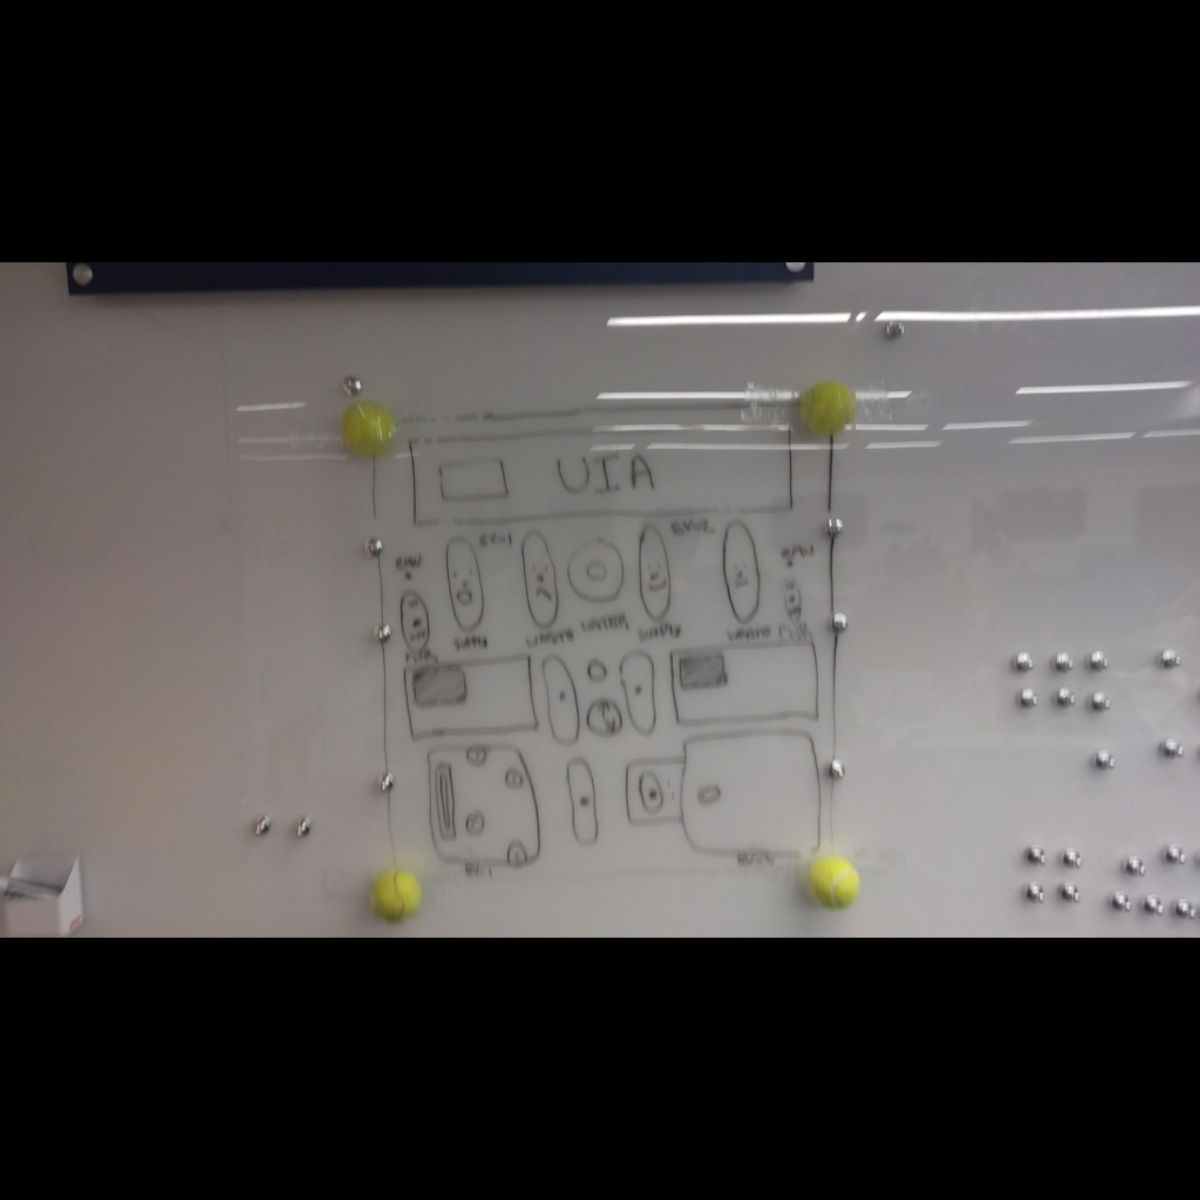 UIA
EV-1
EV-2
EMU
EMU
SUPPLY
WASTE
WATER
SUPPLY
WASTE
PWR
PWR
EV-1
EV-2